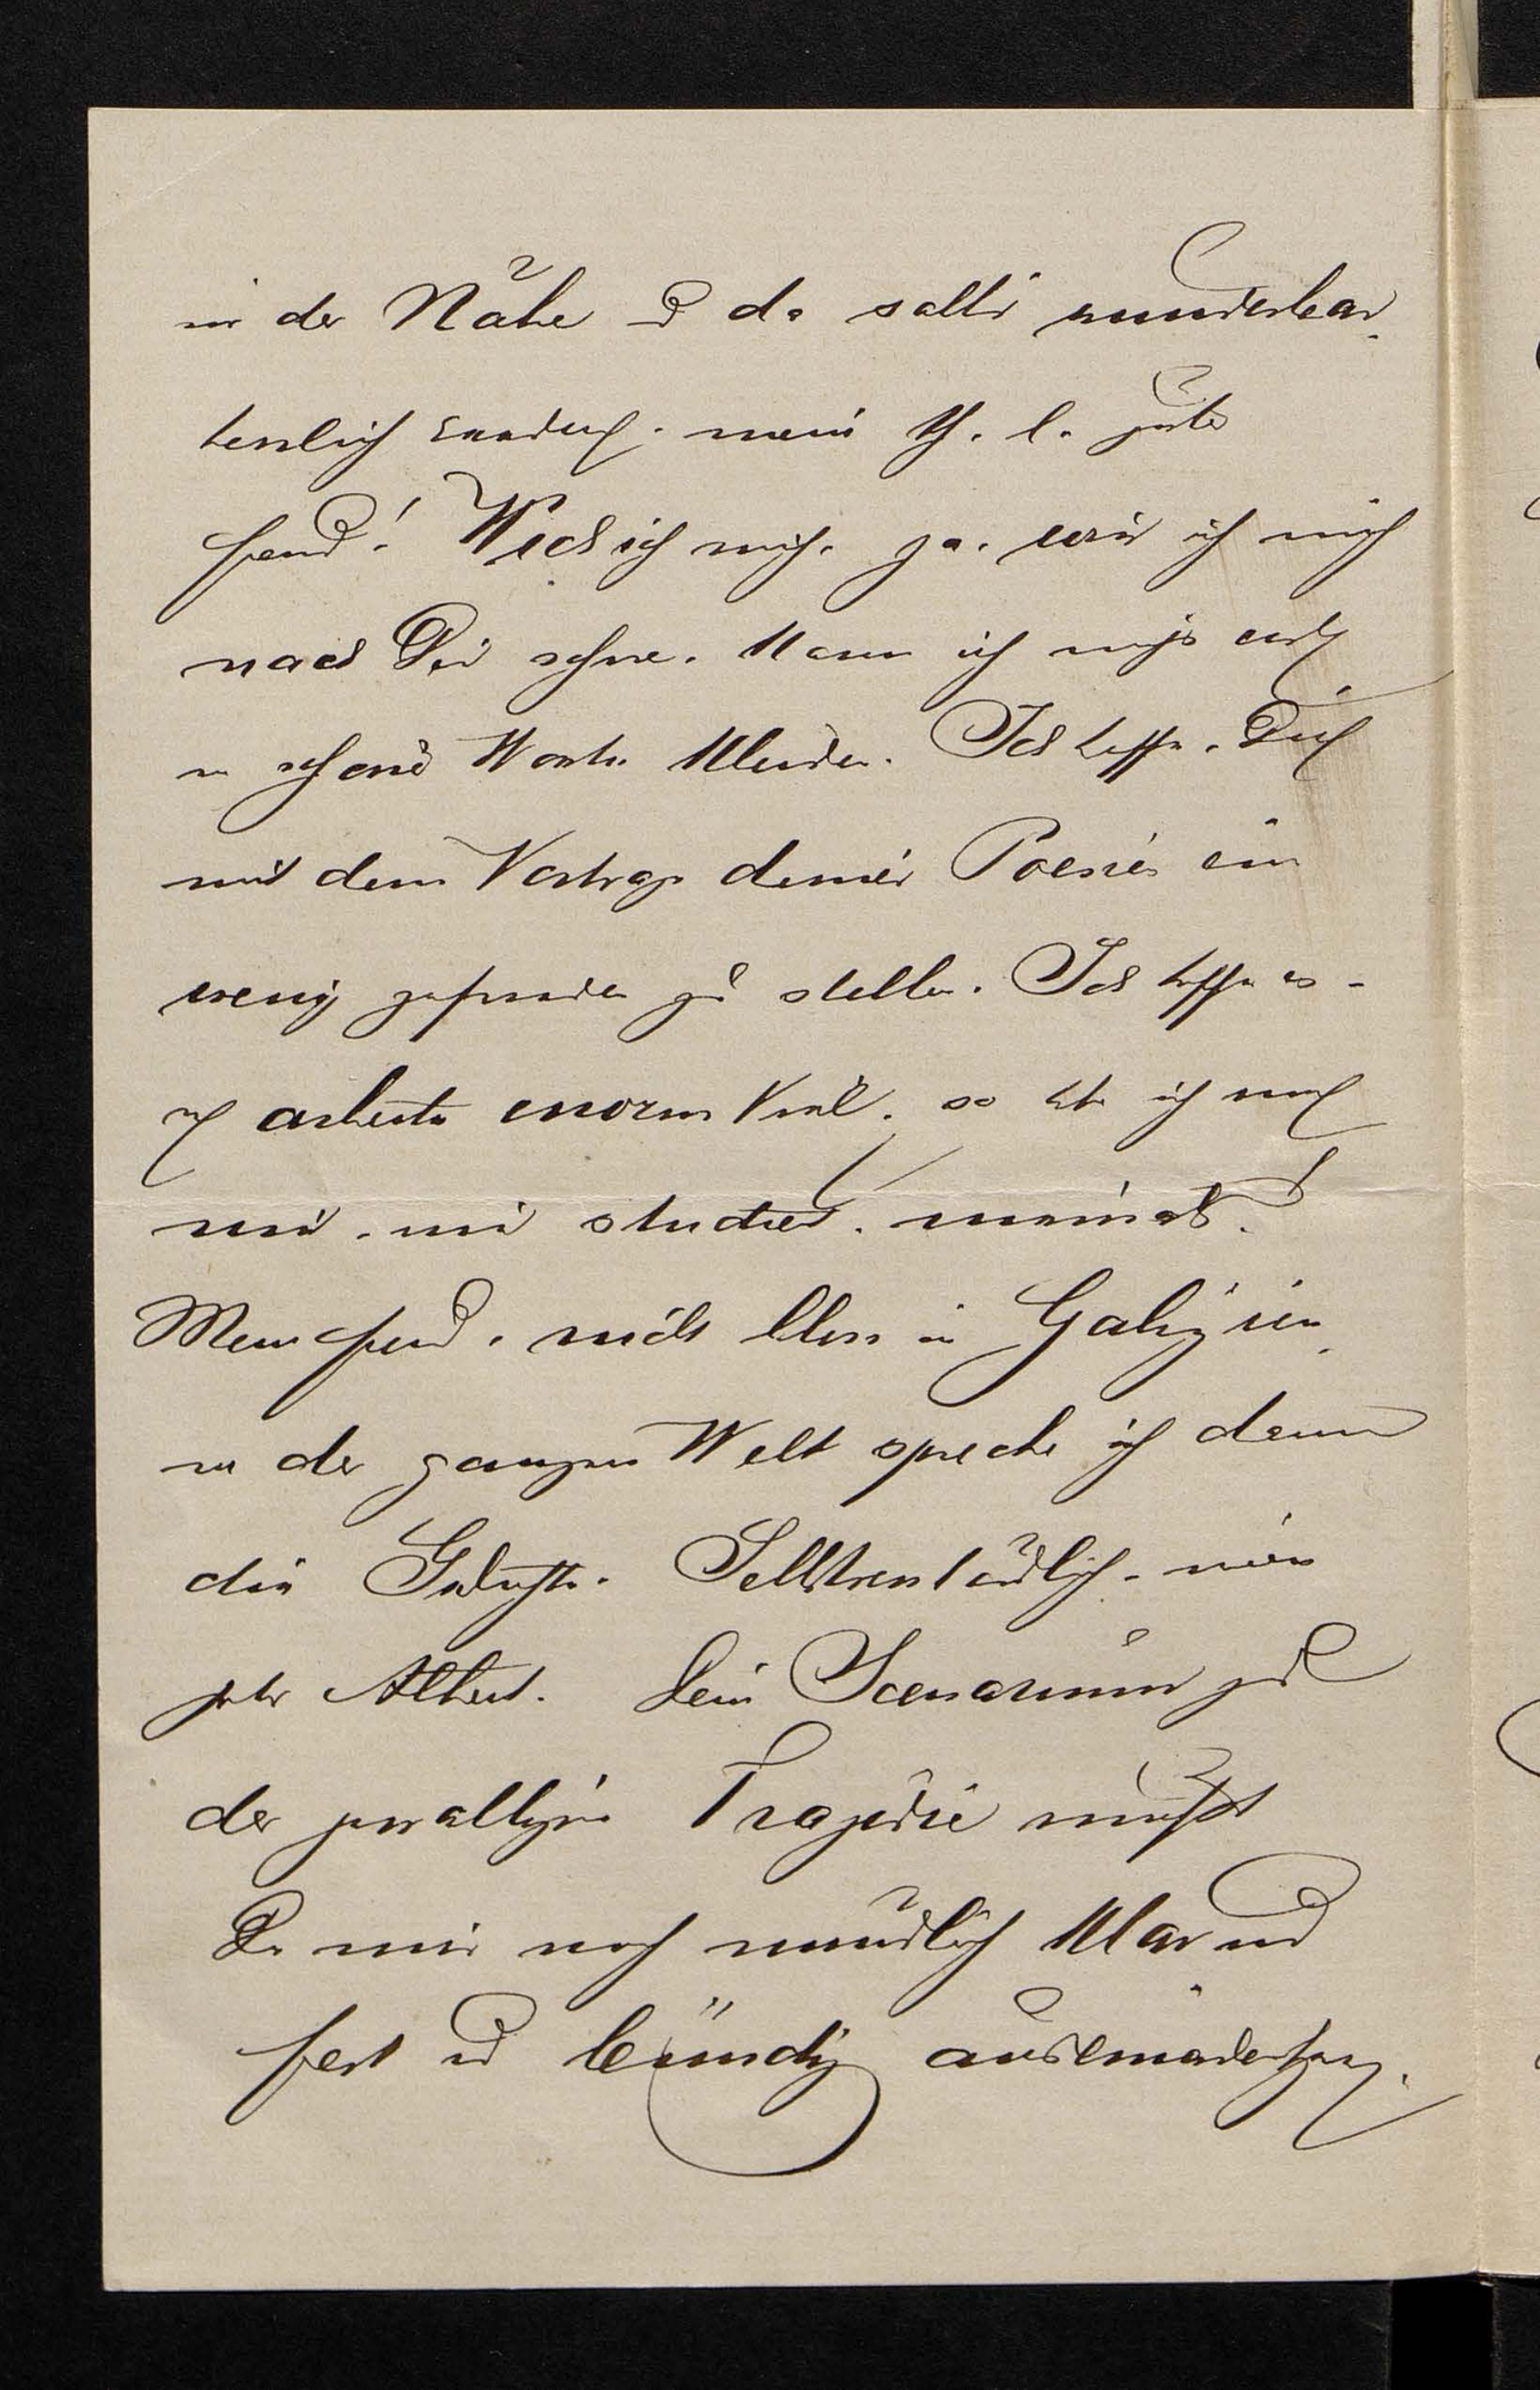 in der Nähe u da sollst wunderbar
herrlich               mein th. l. guter
Freund! Wie ich mich, ja, wie ich mich
nach Dir sehne, kann ich nicht
in schöne Worte kleiden. Ich hoffe, Dich
mit dem Vortrage deiner Poesie ein
wenig zufrieden zu stellen. Ich hoffe es –
ich arbeite enorm viel, so habe ich noch
nie, nie studiert, niemals.
Mein Freund, nicht blos in Galizien,
in der ganzen Welt spreche ich dann
die Gedichte. Selbstverständlich, mein
guter Albert. Dein Scenarium zu
der gewaltigen Tragödie mußt
Du mir noch mündlich klar und
fest und bündig auseinandersetzen.